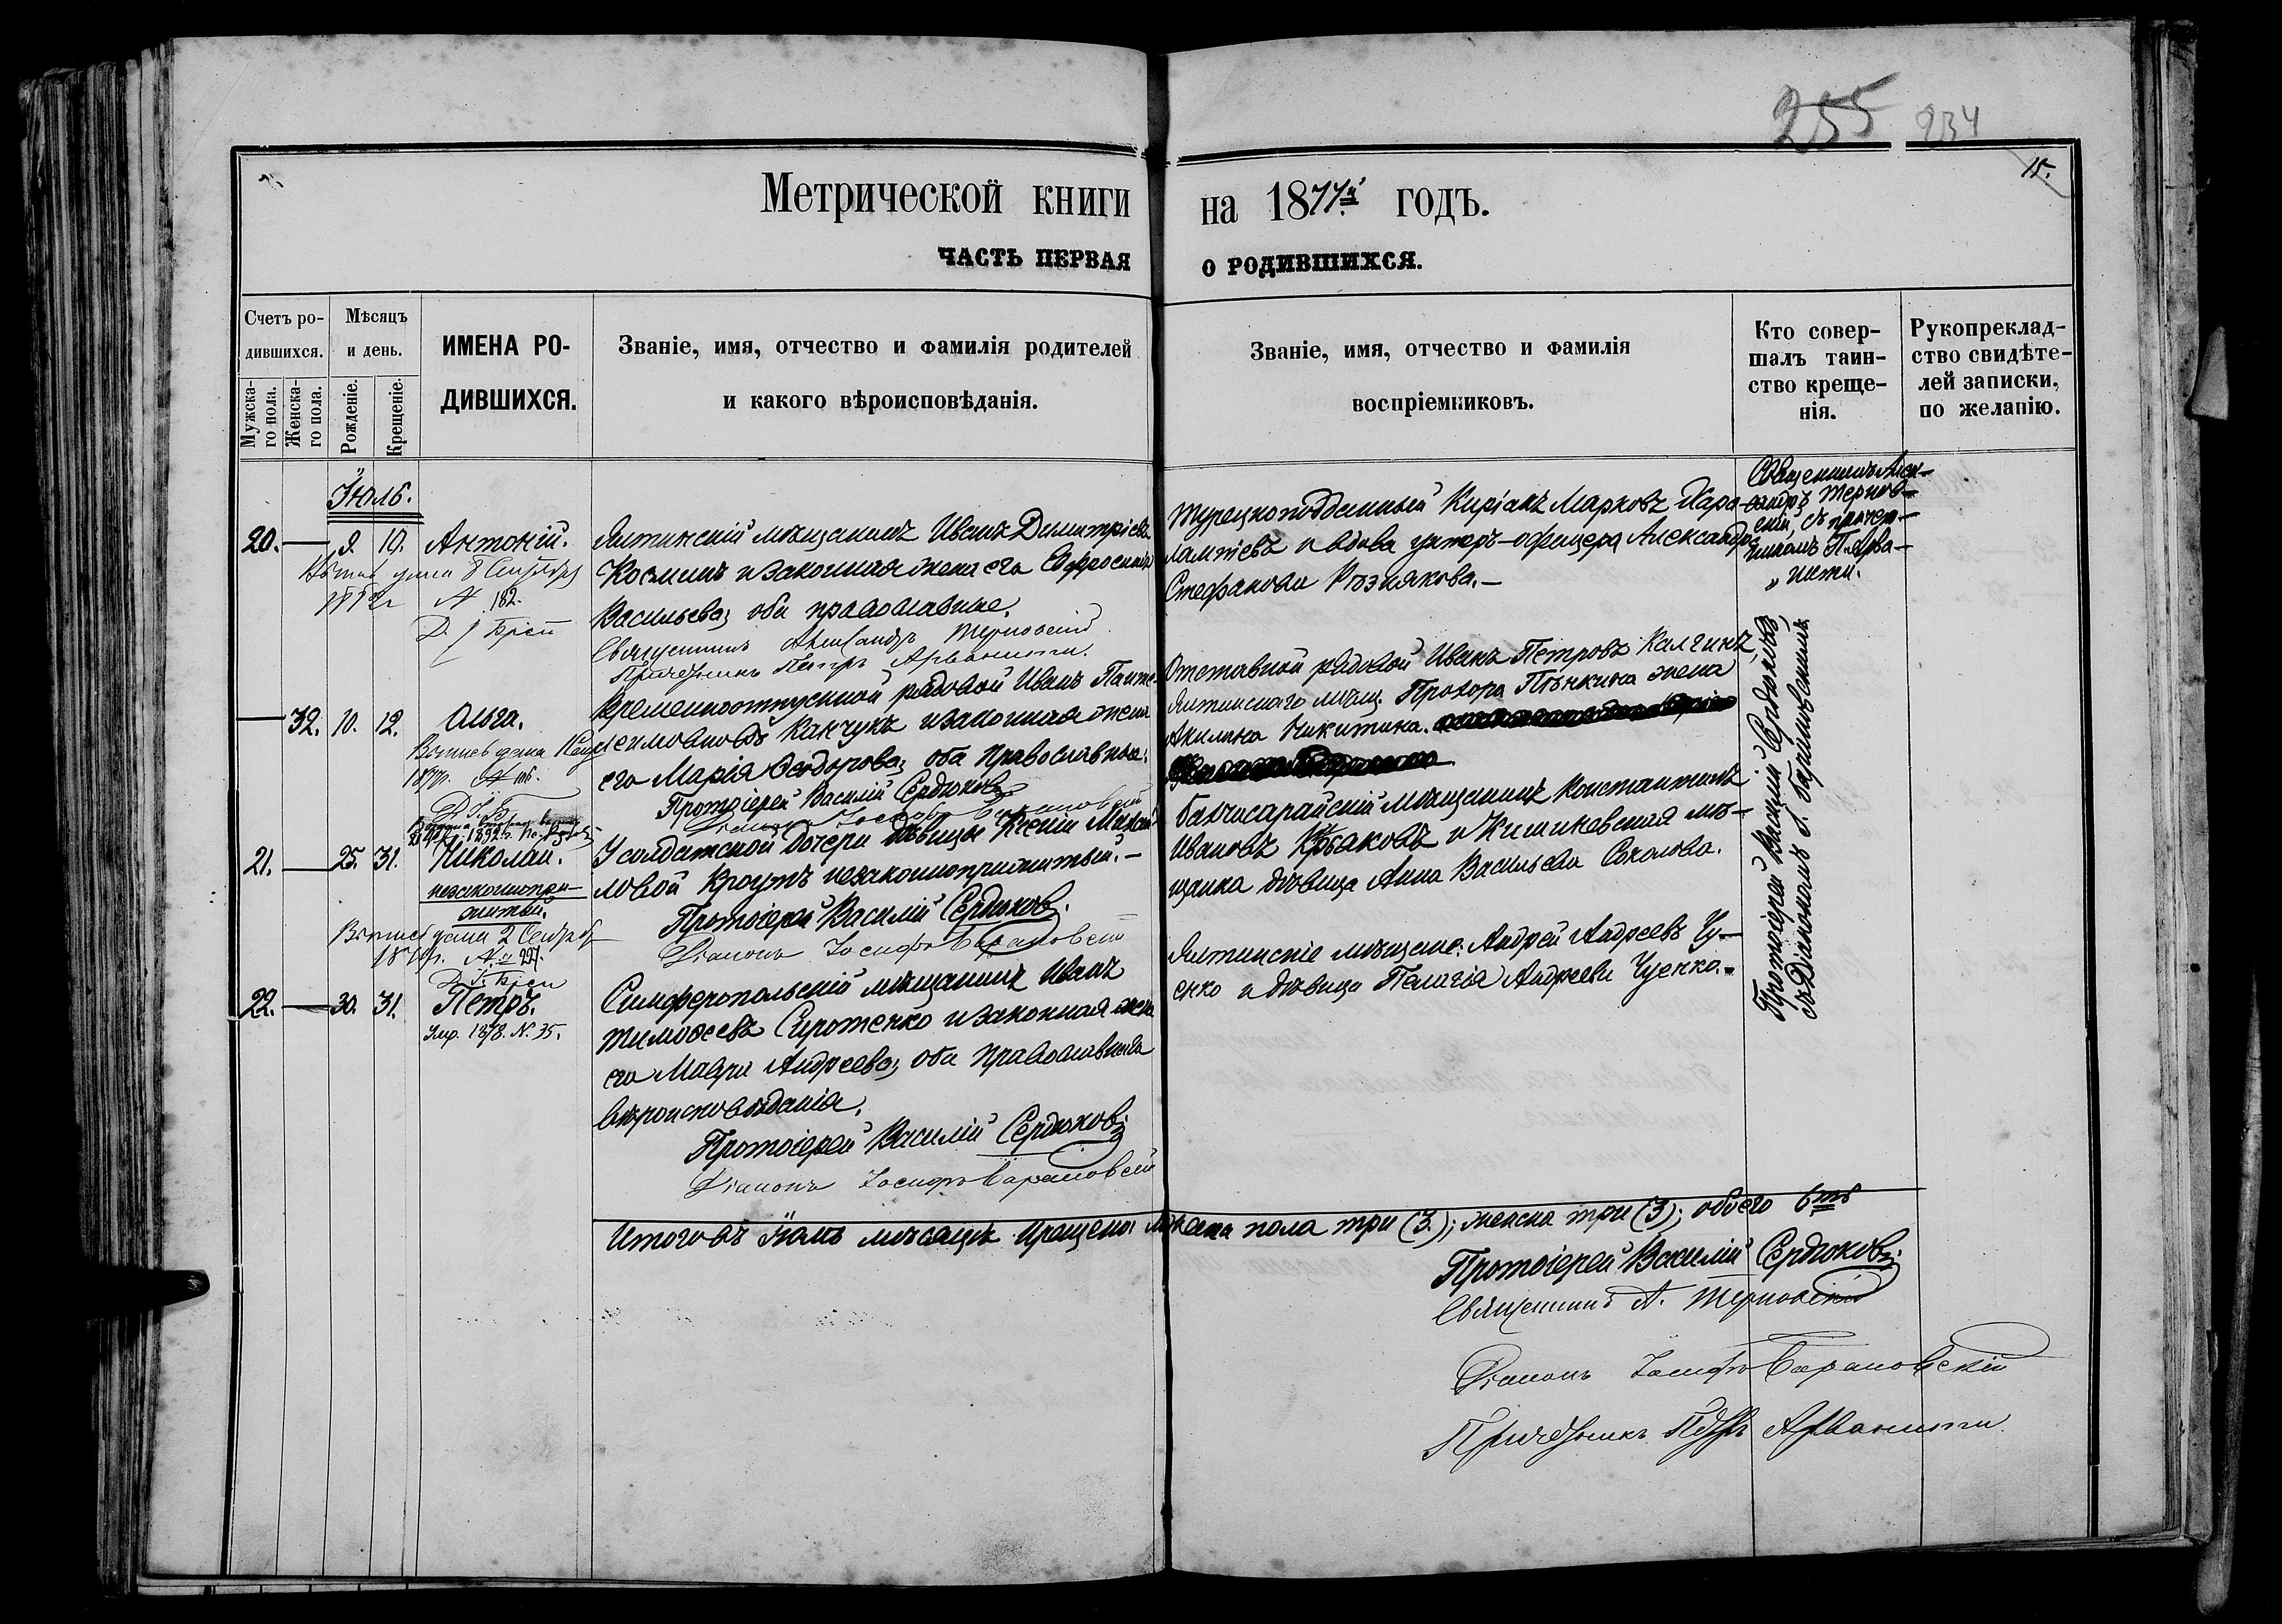 255 234
15.
Метрической книги на 1877й годъ.
ЧАСТЬ ПЕРВАЯ О РОДИВШИХСЯ.
Счетъ ро-
дившихся.
Мужска-
го пола.
Женска-
го пола.
Мѣсяцъ
и день.
Рожденіе.
Крещеніе.
ИМЕНА РО-
ДИВШИХСЯ.
Званіе, имя, отчество и фамилія родителей
и какого вѣроисповѣданія.
Званіе, имя, отчество и фамилія
воспріемниковъ.
Кто совер-
шалъ таин-
ство креще-
нія.
Рукопреклад-
ство свидѣте-
лей записки,
по желанію.
Іюль.
20. 9. 19. Антоній.
182.
Ялтинскій мѣщанинъ Иванъ Димитріевъ
Косминъ и законная жена его Евфросинія
Васильева; оба православные.
Священникъ Александръ Терновскій
Причетникъ Петръ Арванити.
Турецкоподданный Киріакъ Марковъ Хара-
лампіевъ и вдова унтеръ-офицера Александра
Стефанова Рѣзнякова.
Священникъ Алек-
сандръ Тернов-
скій, съ причет-
никомъ П. Арва-
нити.
32. 10. 12. Ольга.
Временноотпускной рядовой Иванъ Панте-
леимоновъ Канчукъ и законная жена
его Марія Ѳеодорова; оба православные.
Протоіерей Василій Сердюковъ
Діаконъ Іосифъ Барановскій
Отставной рядовой Иванъ Петровъ Калгинъ,
Ялтинскаго мѣщ. Прохора Пѣнкина жена
Акилина Никитина.
21. 25. 31. Николай.
незаконнопри-
житый.
У солдатской дочери дѣвицы Ксеніи Михай-
ловой Кроутъ незаконноприжитый.
Протоіерей Василій Сердюковъ.
Діаконъ Іосифъ Барановскій
Бахчисарайскій мѣщанинъ Константинъ
Ивановъ и Кишиневская мѣ-
щанка дѣвица Анна Васильева Соколова.
Протоіерей Василій Сердюковъ,
съ Діакономъ І. Барановскимъ
22. 30. 31. Петръ.
Умр. 1878. N. 35.
Симферопольскій мѣщанинъ Иванъ
Тимоѳеевъ Сиротенко и законная жена
его Мавра Андреева; оба православнаго
вѣроисповѣданія.
Протоіерей Василій Сердюковъ
Діаконъ Іосифъ Барановскій
Ялтинскіе мѣщане: Андрей Андреевъ Чу-
енко и дѣвица Пелагія Андреева Чуенко.
Итого въ Іюль мѣсяцѣ крещено: мужеска пола три (3.); женска три (3); обоего 6ть
Протоіерей Василій Сердюковъ
Священникъ А. Терновскій
Діаконъ Іосифъ Барановскій
Причетникъ Петръ Арванити.